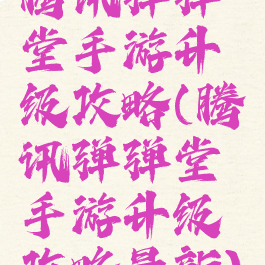 腾讯弹弹
堂手游升
级攻略(腾
讯弹弹堂
手游升级
攻略最新)